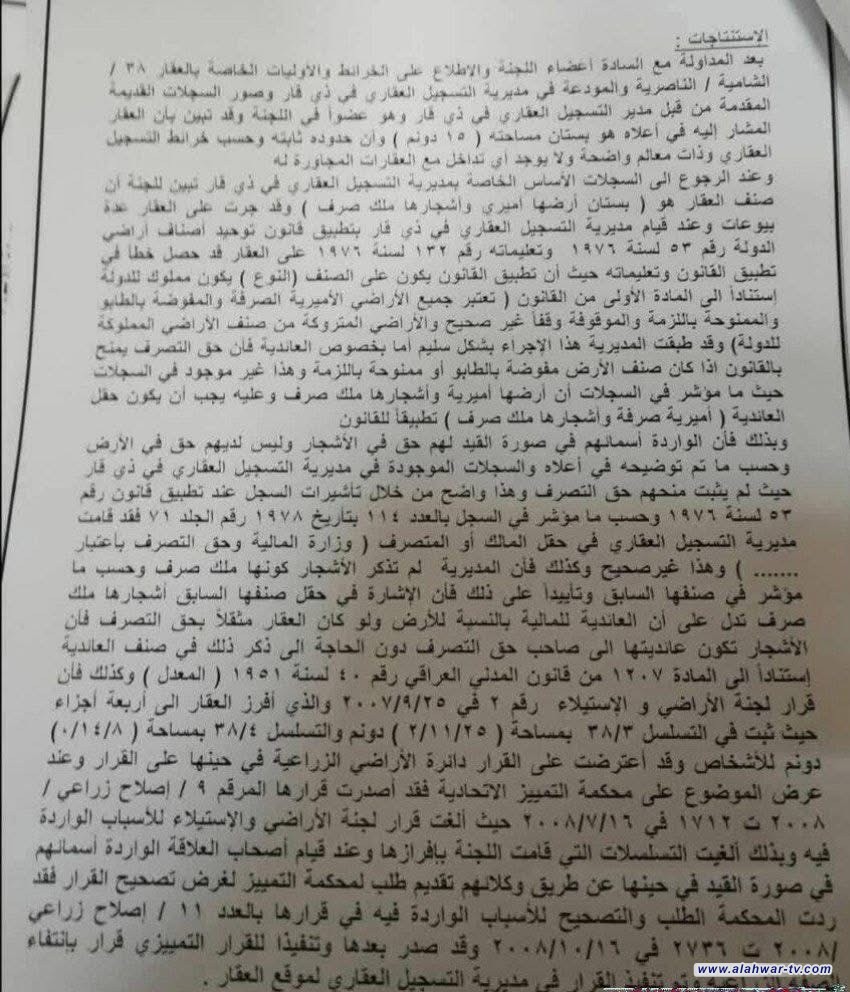 الإستنتاجات :
بعد المداولة مع السادة أعضاء اللجنة والإطلاع على الخرائط والأوليات الخاصة بالعقار ٣٨ /
الشامية / الناصرية والمودعة في مديرية التسجيل العقاري في ذي قار وصور السجلات القديمة
المقدمة من قبل مدير التسجيل العقاري في ذي قار وهو عضواً في اللجنة وقد تبين بأن العقار
المشار إليه في أعلاه هو بستان مساحته ( ١٥ دونم ) وأن حدوده ثابته وحسب خرائط التسجيل
العقاري وذات معالم واضحة ولا يوجد أي تداخل مع العقارات المجاورة له
وعند الرجوع الى السجلات الأساس الخاصة بمديرية التسجيل العقاري في ذي قار تبين للجنة أن
صنف العقار هو ( بستان أرضها أميري وأشجارها ملك صرف ) وقد جرت على العقار عدة
بيوعات وعند قيام مديرية التسجيل العقاري في ذي قار بتطبيق قانون توحيد أصناف أراضي
الدولة رقم ٥٣ لسنة ١٩٧٦ وتعليماته رقم ١٣٢ لسنة ١٩٧٦ على العقار قد حصل خطأ في
تطبيق القانون وتعليماته حيث أن تطبيق القانون يكون على الصنف (النوع ) يكون مملوك للدولة
إستناداً الى المادة الأولى من القانون ( تعتبر جميع الأراضي الأميرية الصرفة والمفوضة بالطابو
والممنوحة باللزمة والموقوفة وقفاً غير صحيح والأراضي المتروكة من صنف الأراضي المملوكة
للدولة) وقد طبقت المديرية هذا الإجراء بشكل سليم أما بخصوص العائدية فأن حق التصرف يمنح
بالقانون اذا كان صنف الأرض مفوضة بالطابو أو ممنوحة باللزمة وهذا غير موجود في السجلات
حيث ما مؤشر في السجلات أن أرضها أميرية وأشجارها ملك صرف وعليه يجب أن يكون حقل
العائدية ( أميرية صرفة وأشجارها ملك صرف ) تطبيقاً للقانون
وبذلك فأن الواردة أسمائهم في صورة القيد لهم حق في الأشجار وليس لديهم حق في الأرض
وحسب ما تم توضيحه في أعلاه والسجلات الموجودة في مديرية التسجيل العقاري في ذي قار
حيث لم يثبت منحهم حق التصرف وهذا واضح من خلال تأشيرات السجل عند تطبيق قانون رقم
٥٣ لسنة ١٩٧٦ وحسب ما مؤشر في السجل بالعدد ١١٤ بتأريخ ١٩٧٨ رقم الجلد ٧١ فقد قامت
مديرية التسجيل العقاري في حقل المالك أو المتصرف ( وزارة المالية وحق التصرف بأعتبار
....... ) وهذا غيرصحيح وكذلك فأن المديرية لم تذكر الأشجار كونها ملك صرف وحسب ما
مؤشر في صنفها السابق وتأييداً على ذلك فأن الإشارة في حقل صنفها السابق أشجارها ملك
صرف تدل على أن العائدية للمالية بالنسبة للأرض ولو كان العقار مثقلاً بحق التصرف فأن
الأشجار تكون عائديتها الى صاحب حق التصرف دون الحاجة الى ذكر ذلك في صنف العائدية
إستناداً الى المادة ١٢٠٧ من قانون المدني العراقي رقم ٤٠ لسنة ١٩٥١ ( المعدل ) وكذلك فأن
قرار لجنة الأراضي و الإستيلاء رقم ٢ في ٢٠٠٧/٩/٢٥ والذي أفرز العقار الى أربعة أجزاء
حيث ثبت في التسلسل ٣٨/٣ بمساحة ( ٢/١١/٢٥ ) دونم والتسلسل ٣٨/٤ بمساحة ( ٠/١٤/٨)
دونم للأشخاص وقد أعترضت على القرار دائرة الأراضي الزراعية في حينها على القرار وعند
عرض الموضوع على محكمة التمييز الاتحادية فقد أصدرت قرارها المرقم ٩ / إصلاح زراعي /
٢٠٠٨ ت ١٧١٢ في ٢٠٠٨/٧/١٦ حيث ألغت قرار لجنة الأراضي والإستيلاء للأسباب الواردة
فيه وبذلك ألغيت التسلسلات التي قامت اللجنة بإفرازها وعند قيام أصحاب العلاقة الواردة أسمائهم
في صورة القيد في حينها عن طريق وكلائهم تقديم طلب لمحكمة التمييز لغرض تصحيح القرار فقد
ردت المحكمة الطلب والتصحيح للأسباب الواردة فيه في قرارها بالعدد ١١ / إصلاح زراعي
/٢٠٠٨ ت ٢٧٣٦ في ٢٠٠٨/١٠/١٦ وقد صدر بعدها وتنفيذا للقرار التمييزي قرار بإنتفاء
تنفيذ القرار في مديرية التسجيل العقاري لموقع العقار .
www.alahwar-tv.com